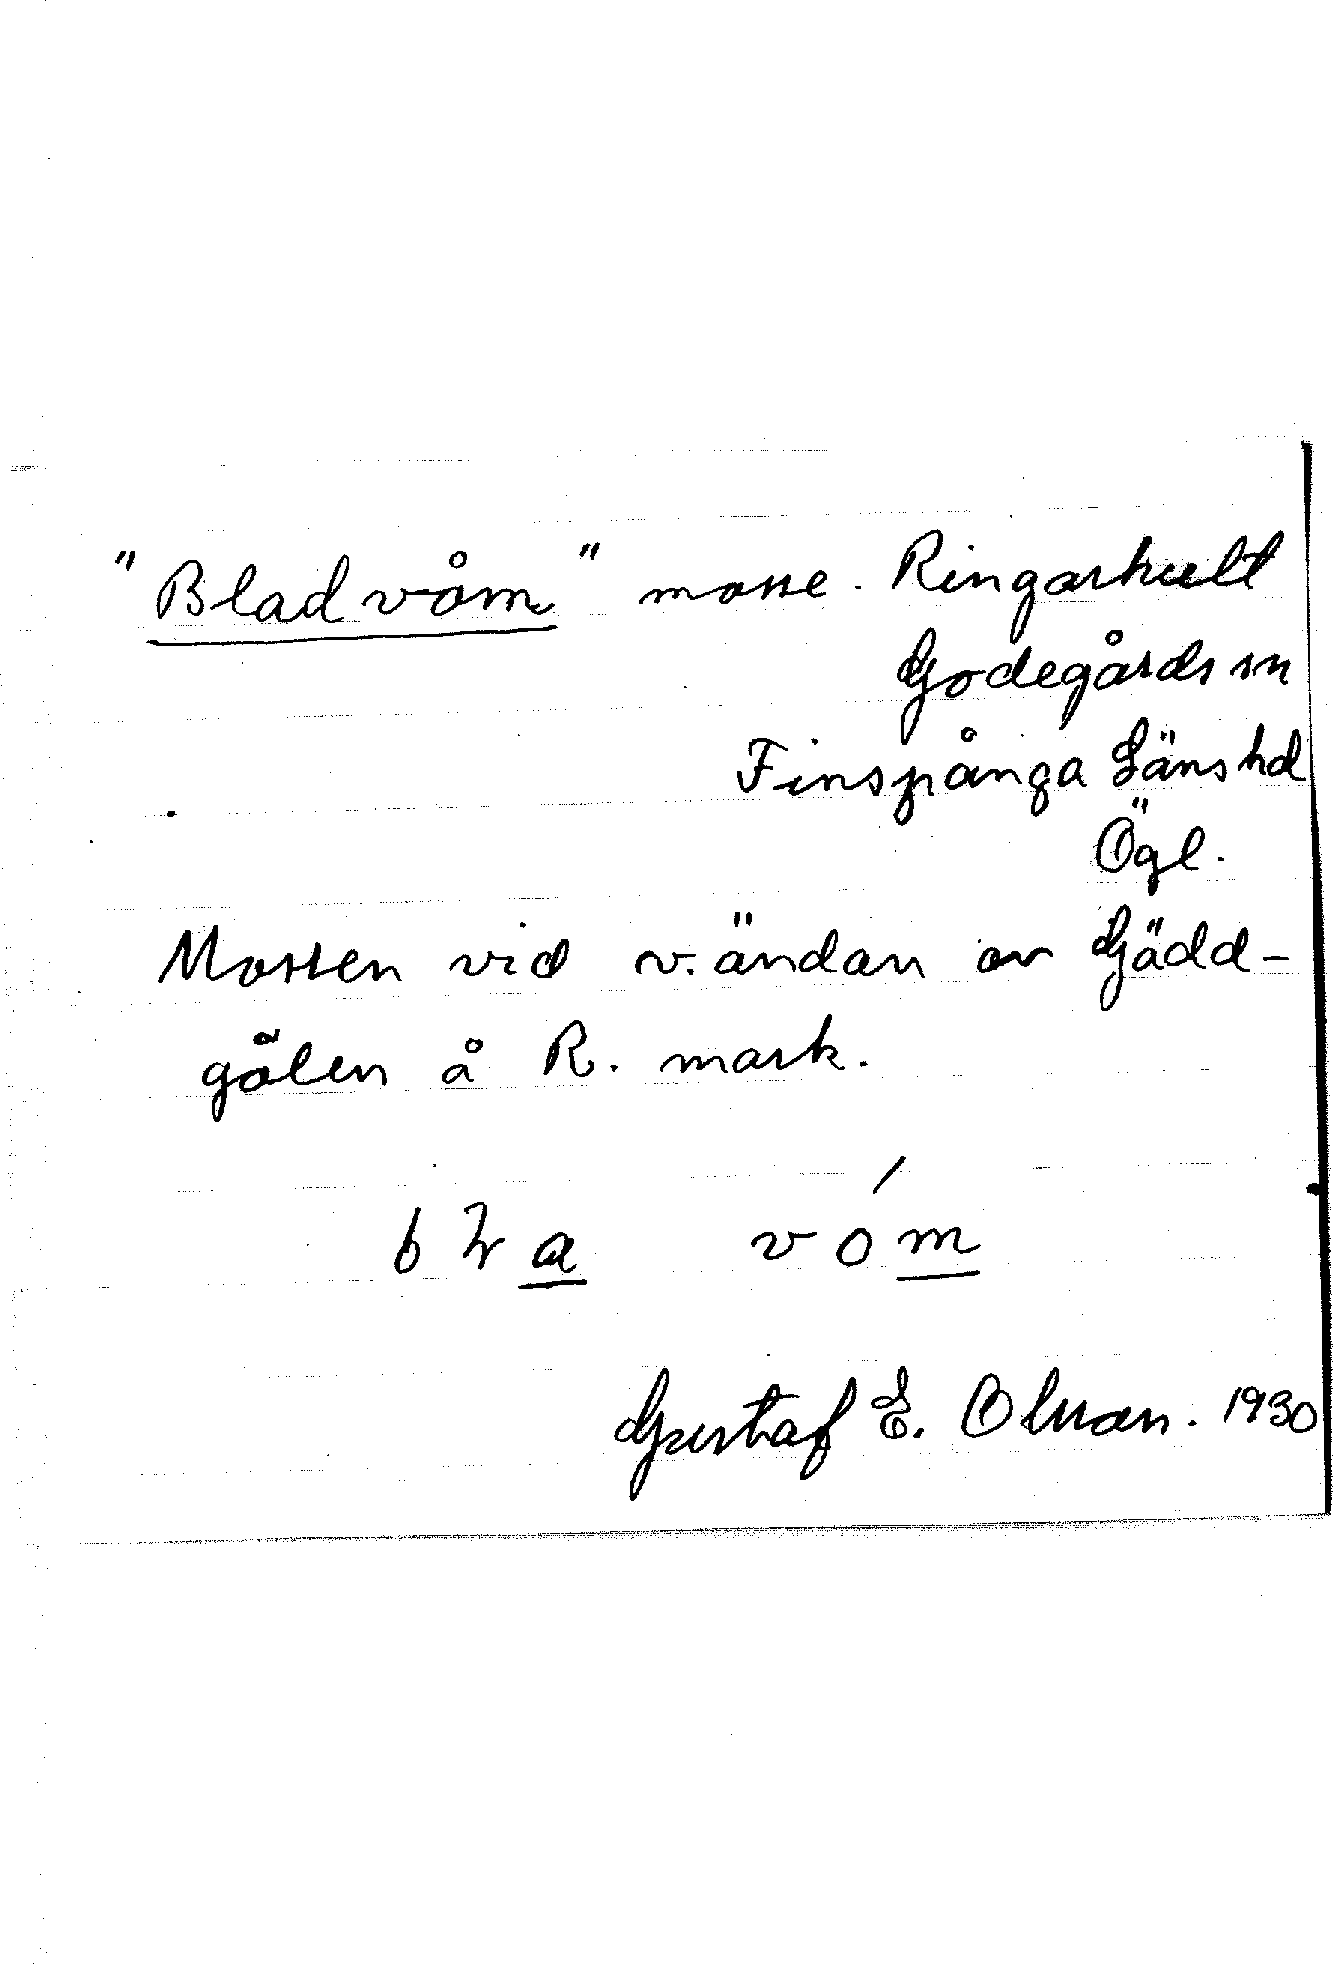 "Bladvåm" mosse. Ringarhult
Godegårds sn
Finspånga Länshd
Ögl.
Mossen vid v. ändan av Gädd-
gölen å R. mark.
vóm
Gustaf E. Olsson. 1930